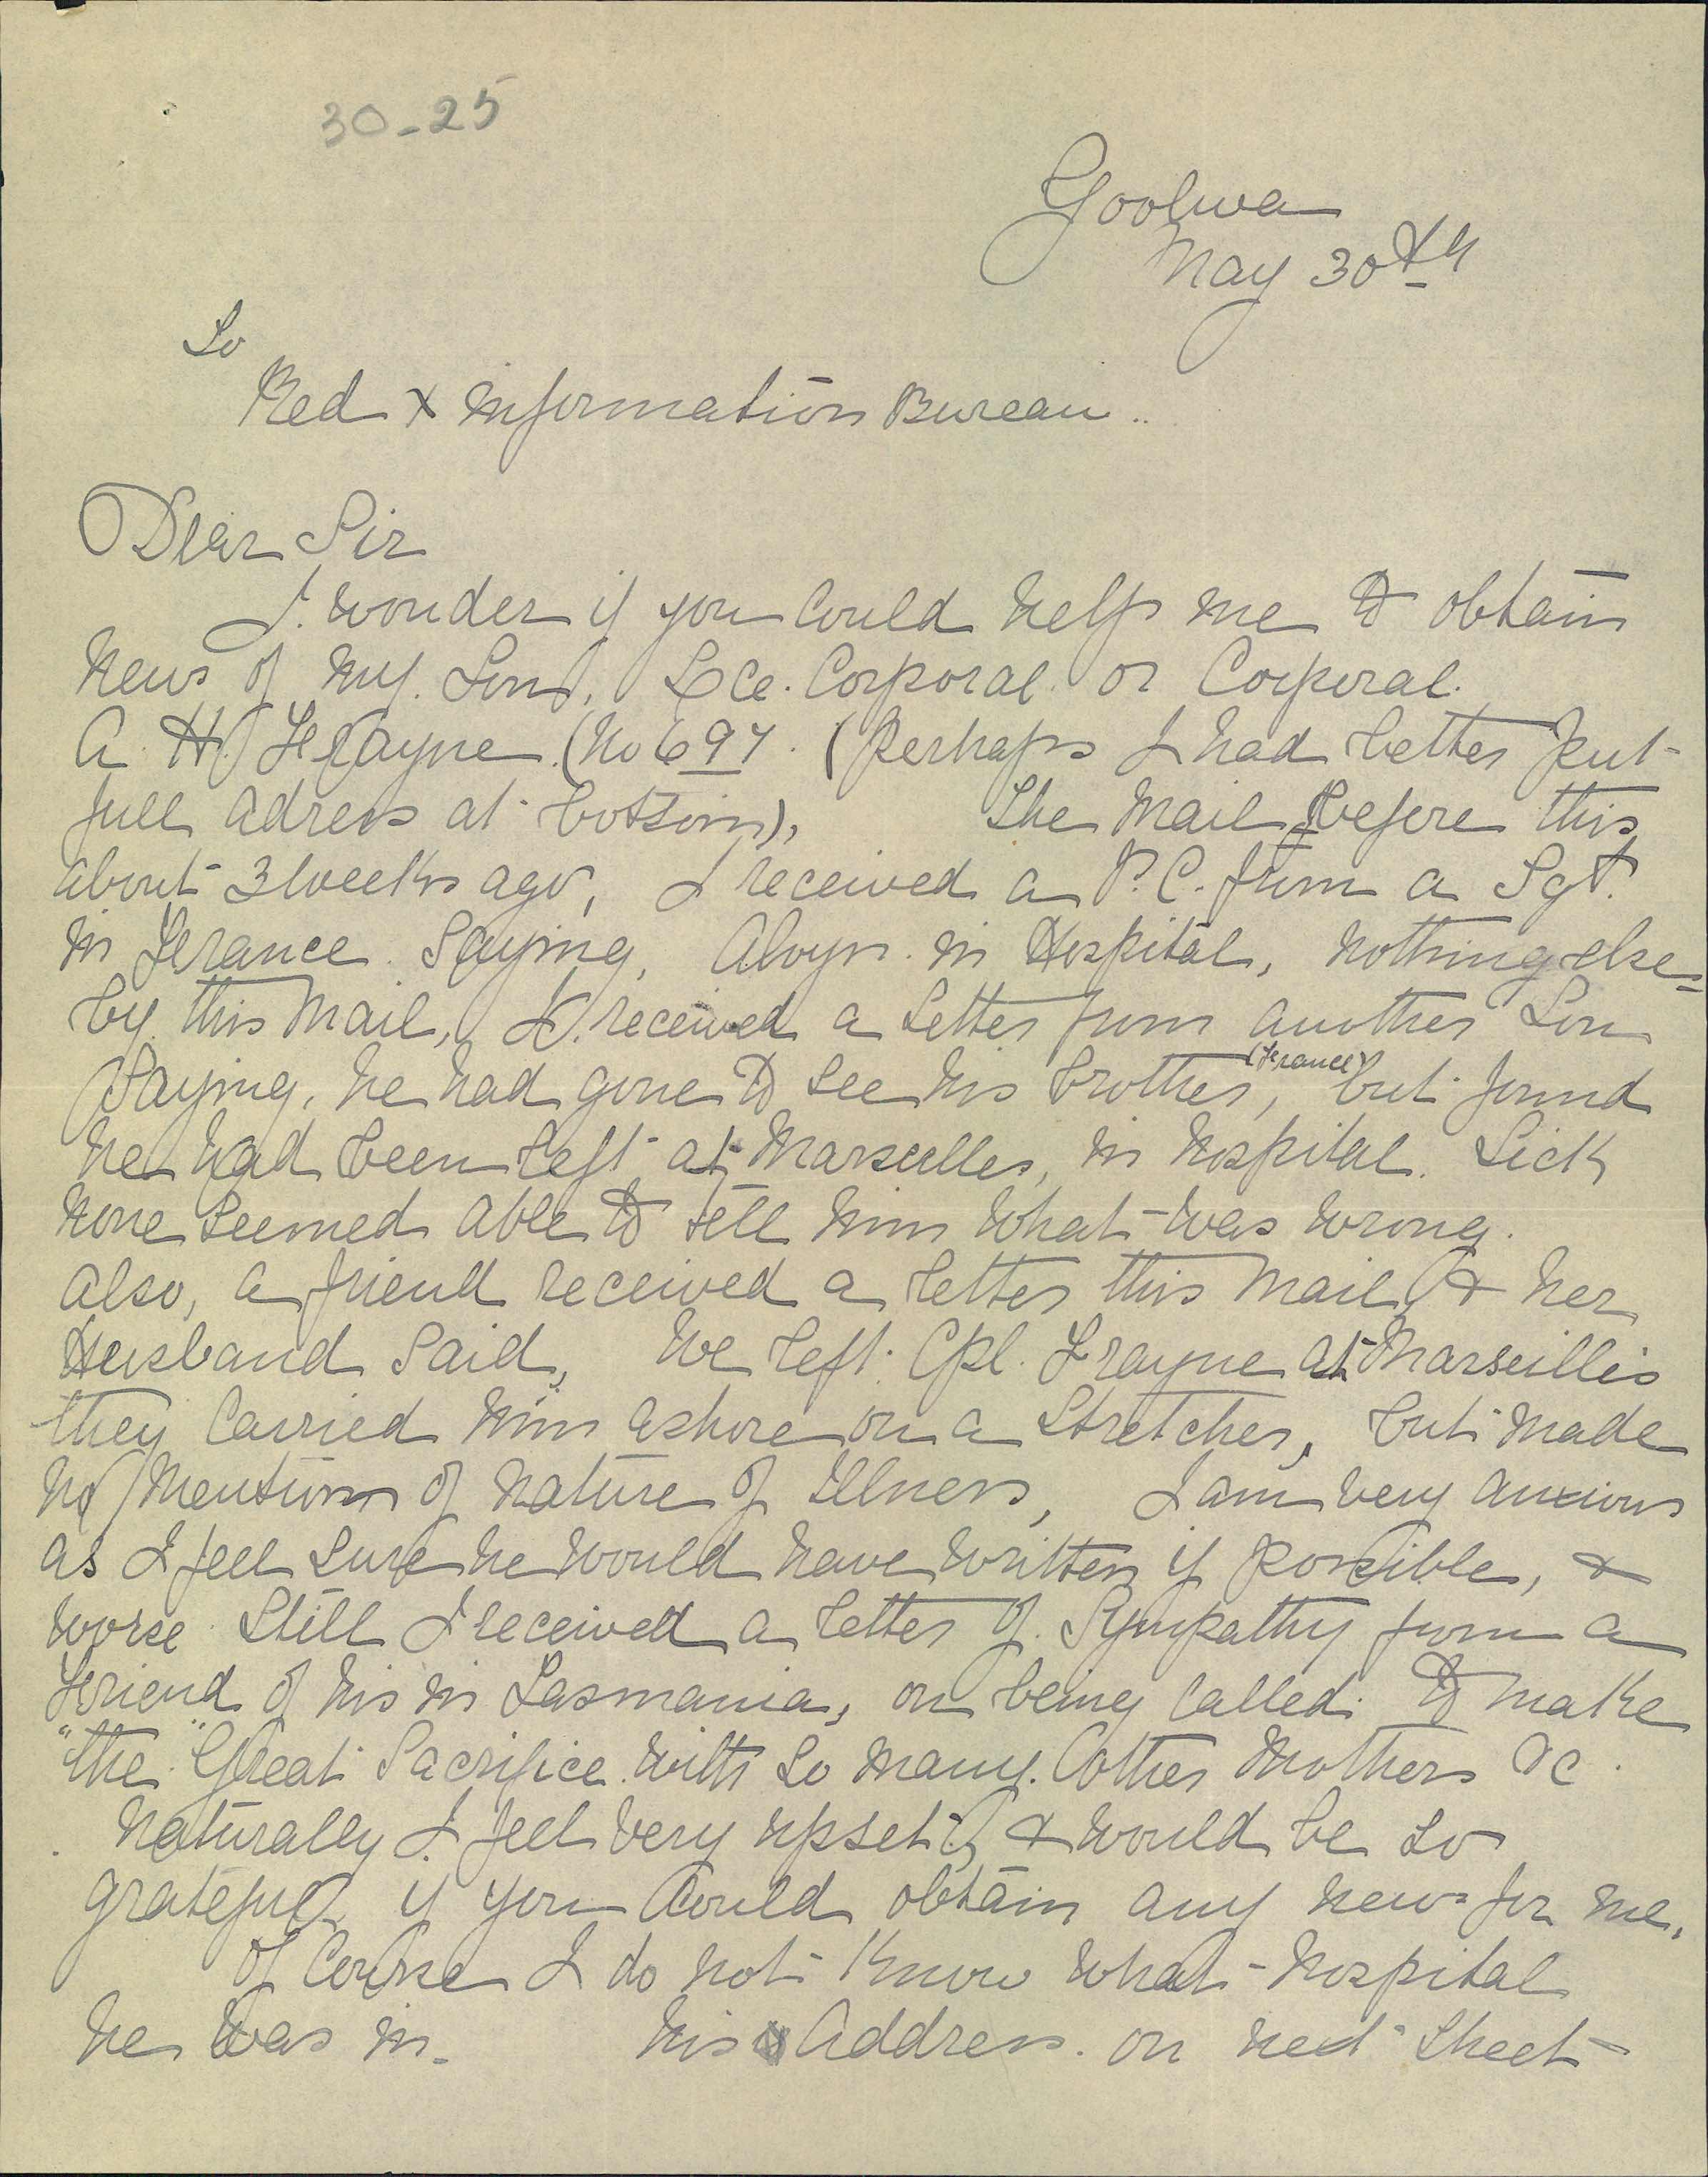 30-25
Goolwa
May 30th
To
Red X Information Bureau..
Dear Sir
I. wonder if you could help me to obtain
News of my. Son, Lce. Corporal. or Corporal.
A. H. Frayne. (No 697. (Perhaps I had better put
full adress at bottom), The Mail before this,
about 3 weeks ago, I received a P.C. from a Sgt.
in France. Saying, Alvyn. in Hospital, nothing else=
by this Mail, I. received a letter from another Son
Saying, he had gone to see his brother, (France) but found
he had been left at Marseilles, in hospital. Sick
None seemed able to tell him what was wrong.
Also, a friend received a letter this Mail, & her
Husband Said, We left. Cpl. Frayne at Marseilles
they carried him ashore on a stretcher, but made
no mention of nature of Illness, I am very anxious
as I feel sure he would have written if possible, &
worse still I received a letter of Sympathy from a
Friend of his in Tasmania, on being called. to make
"the" Great Sacrifice with so many. other Mothers &c.
Naturally I. feel very upset, & would be so
grateful if you could obtain any news for me.
Of Course I do not know what hospital
he was in. his Address. on next sheet